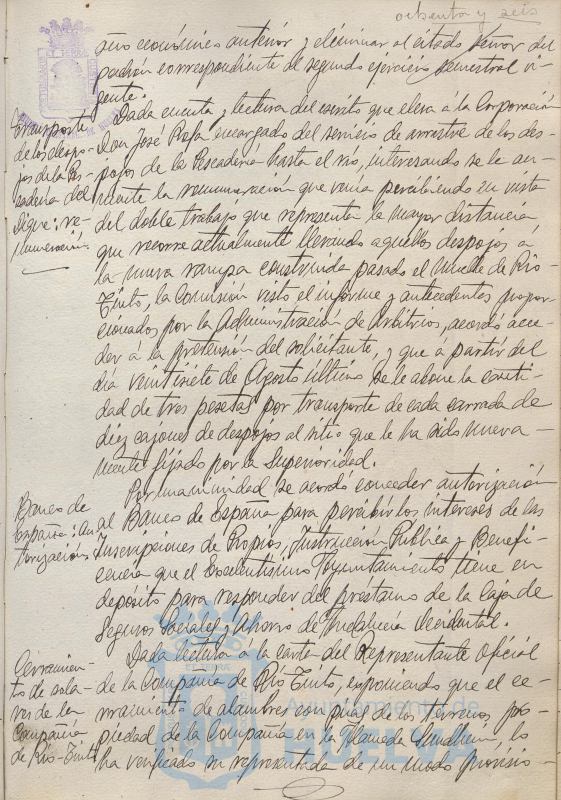 ochenta y seis
año económico anterior y eliminar al citado Señor del
padrón correspondiente al segundo ejercicio semestral vi-
gente.
Transportes
de los despo-
jos de la Pes-
cadería del
Dique: re-
muneración.
Dada cuenta y lectura del escrito que eleva á la Corporación
Don José Rafa encargado del servicio de arrastre de los des-
pojos de la Pescadería hasta el rio, interesando se le au-
mente la remuneración que venía percibiendo en vista
del doble trabajo que representa la mayor distancia
que recorre actualmente llevando aquellos despojos á
la nueva rampa construida pasado el Muelle de Rio-
Tinto, la Comisión visto el informe y antecedentes propor-
cionados por la Administración de Arbitrios, acordó acce-
der á la pretensión del solicitante, y que á partir del
día veintisiete de Agosto último se le abone la canti-
dad de tres pesetas por transporte de cada carrada de
diez cajones de despojos al sitio que le ha sido nueva-
mente fijado por la Superioridad.
Banco de
España: au-
torización.
Por unanimidad se acordó conceder autorización
al Banco de España para percibir los intereses de las
Inscripciones de Propios, Instrucción Pública y Benefi-
cencia que el Excelentísimo Ayuntamiento tiene en
depósito para responder del préstamo de la Caja de
Seguros Sociales y Ahorro de Andalucía Occidental.
Cerramien-
to de sola-
res de la
Compañía
de Rio-Tinto
Dada lectura á la carta del Representante Oficial
de la Compañía de Rio Tinto, exponiendo que el ce-
rramiento de alambres con púas de los terrenos, pro-
piedad de la Compañía en la Alameda Sundheim, lo
ha verificado su representada de un modo provisio-
Ayuntamiento de
HUELVA